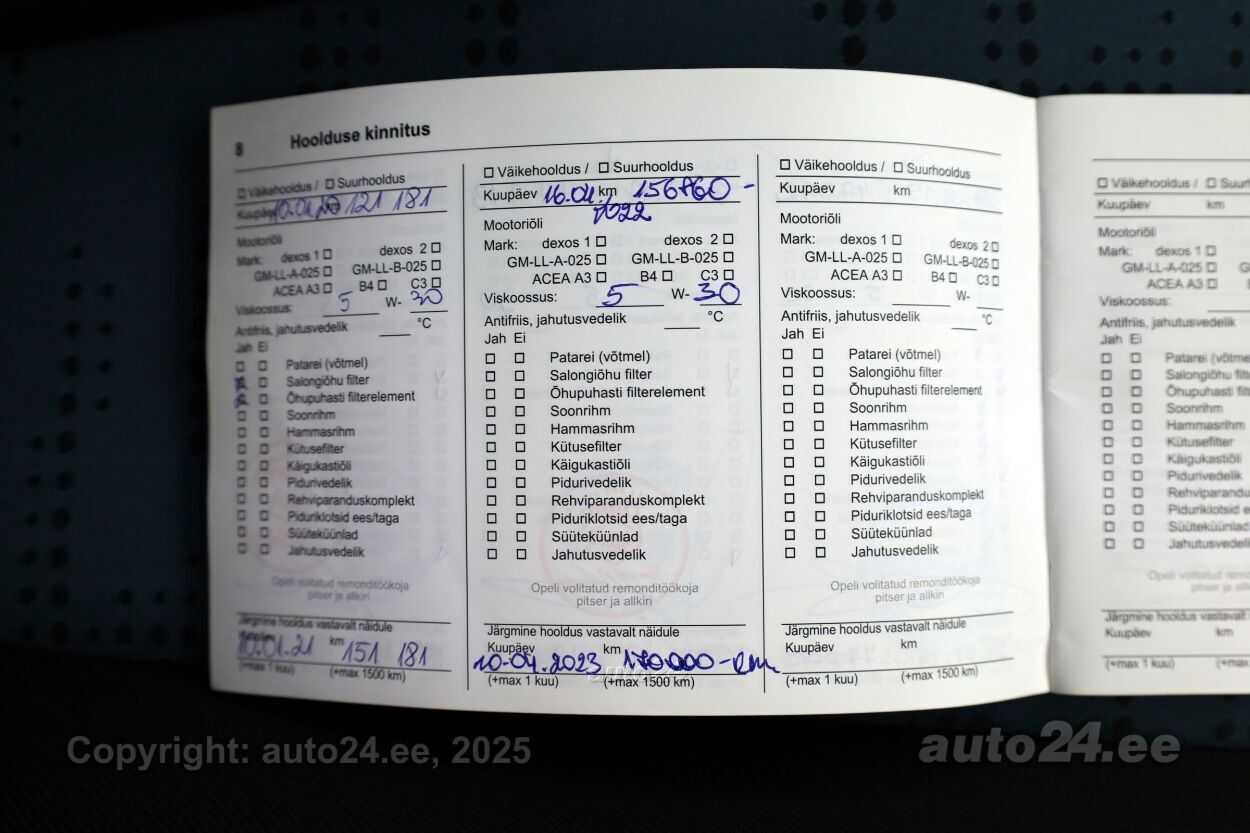 8 Hoolduse kinnitus
☐ Väikehooldus / ☐ Suurhooldus
Kuupäev 10.01.20 121 181
Mootoriõli
Mark: dexos 1 ☐ dexos 2 ☐
GM-LL-A-025 ☐ GM-LL-B-025 ☐
ACEA A3 ☐ B4 ☐ C3 ☐
Viskoossus: 5 W- 30
Antifriis, jahutusvedelik °C
Jah Ei
Patarei (võtmel)
Salongiõhu filter
Õhupuhasti filterelement
Soonrihm
Hammasrihm
Kütusefilter
Käigukastiõli
Pidurivedelik
Rehviparanduskomplekt
Piduriklotsid ees/taga
Süüteküünlad
Jahutusvedelik
Opeli volitatud remonditöökoja
pitser ja allkiri
Järgmine hooldus vastavalt näidule
Kuupäev km
10.01.21 151 181
(+max 1 kuu) (+max 1500 km)
☐ Väikehooldus / ☐ Suurhooldus
Kuupäev 16.04. km
2022
Mootoriõli
Mark: dexos 1 ☐ dexos 2 ☐
GM-LL-A-025 ☐ GM-LL-B-025 ☐
ACEA A3 ☐ B4 ☐ C3 ☐
Viskoossus: 5 W- 30
Antifriis, jahutusvedelik °C
Jah Ei
Patarei (võtmel)
Salongiõhu filter
Õhupuhasti filterelement
Soonrihm
Hammasrihm
Kütusefilter
Käigukastiõli
Pidurivedelik
Rehviparanduskomplekt
Piduriklotsid ees/taga
Süüteküünlad
Jahutusvedelik
Opeli volitatud remonditöökoja
pitser ja allkiri
Järgmine hooldus vastavalt näidule
Kuupäev km
10-04.2023 170.000-km
(+max 1 kuu) (+max 1500 km)
☐ Väikehooldus / ☐ Suurhooldus
Kuupäev km
Mootoriõli
Mark: dexos 1 ☐ dexos 2 ☐
GM-LL-A-025 ☐ GM-LL-B-025 ☐
ACEA A3 ☐ B4 ☐ C3 ☐
Viskoossus: W-
Antifriis, jahutusvedelik °C
Jah Ei
Patarei (võtmel)
Salongiõhu filter
Õhupuhasti filterelement
Soonrihm
Hammasrihm
Kütusefilter
Käigukastiõli
Pidurivedelik
Rehviparanduskomplekt
Piduriklotsid ees/taga
Süüteküünlad
Jahutusvedelik
Opeli volitatud remonditöökoja
pitser ja allkiri
Järgmine hooldus vastavalt näidule
Kuupäev km
(+max 1 kuu) (+max 1500 km)
☐ Väikehooldus / ☐
Kuupäev km
Mootoriõli
Mark: dexos 1 ☐
GM-LL-A-025 ☐
ACEA A3 ☐
Viskoossus:
Antifriis, jahutusvedelik
Jah Ei
Patarei
Salongiõhu
Õhupuhasti
Soonrihm
Hammasrihm
Kütusefilter
Käigukastiõli
Pidurivedelik
Piduriklotsid
Süüteküünlad
Opeli volitatud
Järgmine hooldus vastavalt
Kuupäev km
(+max 1 kuu)
Copyright: auto24.ee, 2025
auto24.ee